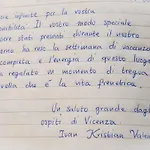 infinite per la vostra
Il vostro modo speciale
essere stati presenti durante il nostro
ha reso la settimana di vacanza
completa e l'energia di questo luogo
ha regalato un momento di tregua
quella che è la vita frenetica.
Un saluto grande dagli
ospiti di Vicenza
Ivan Kristian